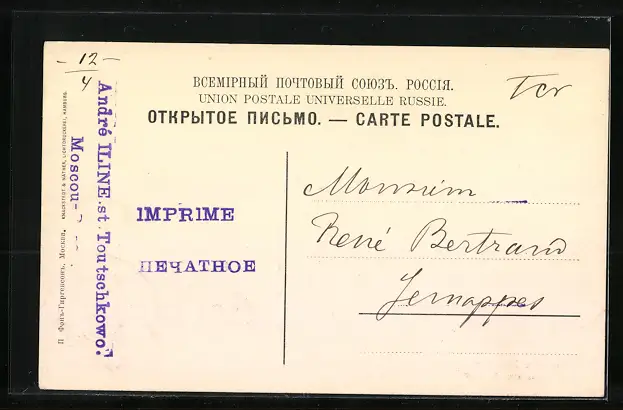 - 12 -
4
Tcv
ВСЕМІРНЫЙ ПОЧТОВЫЙ СОЮЗЪ. РОССІЯ.
UNION POSTALE UNIVERSELLE RUSSIE.
ОТКРЫТОЕ ПИСЬМО. — CARTE POSTALE.
IMPRIME
ПЕЧАТНОЕ
Monsieur
René Bertrand
Jemappes
André ILINE.st.Toutschkowo.
Moscou-
П. Фонъ-Гиргенсонъ, Москва. KNACKSTEDT & NÄTHER, LICHTDRUCKEREI, HAMBURG.